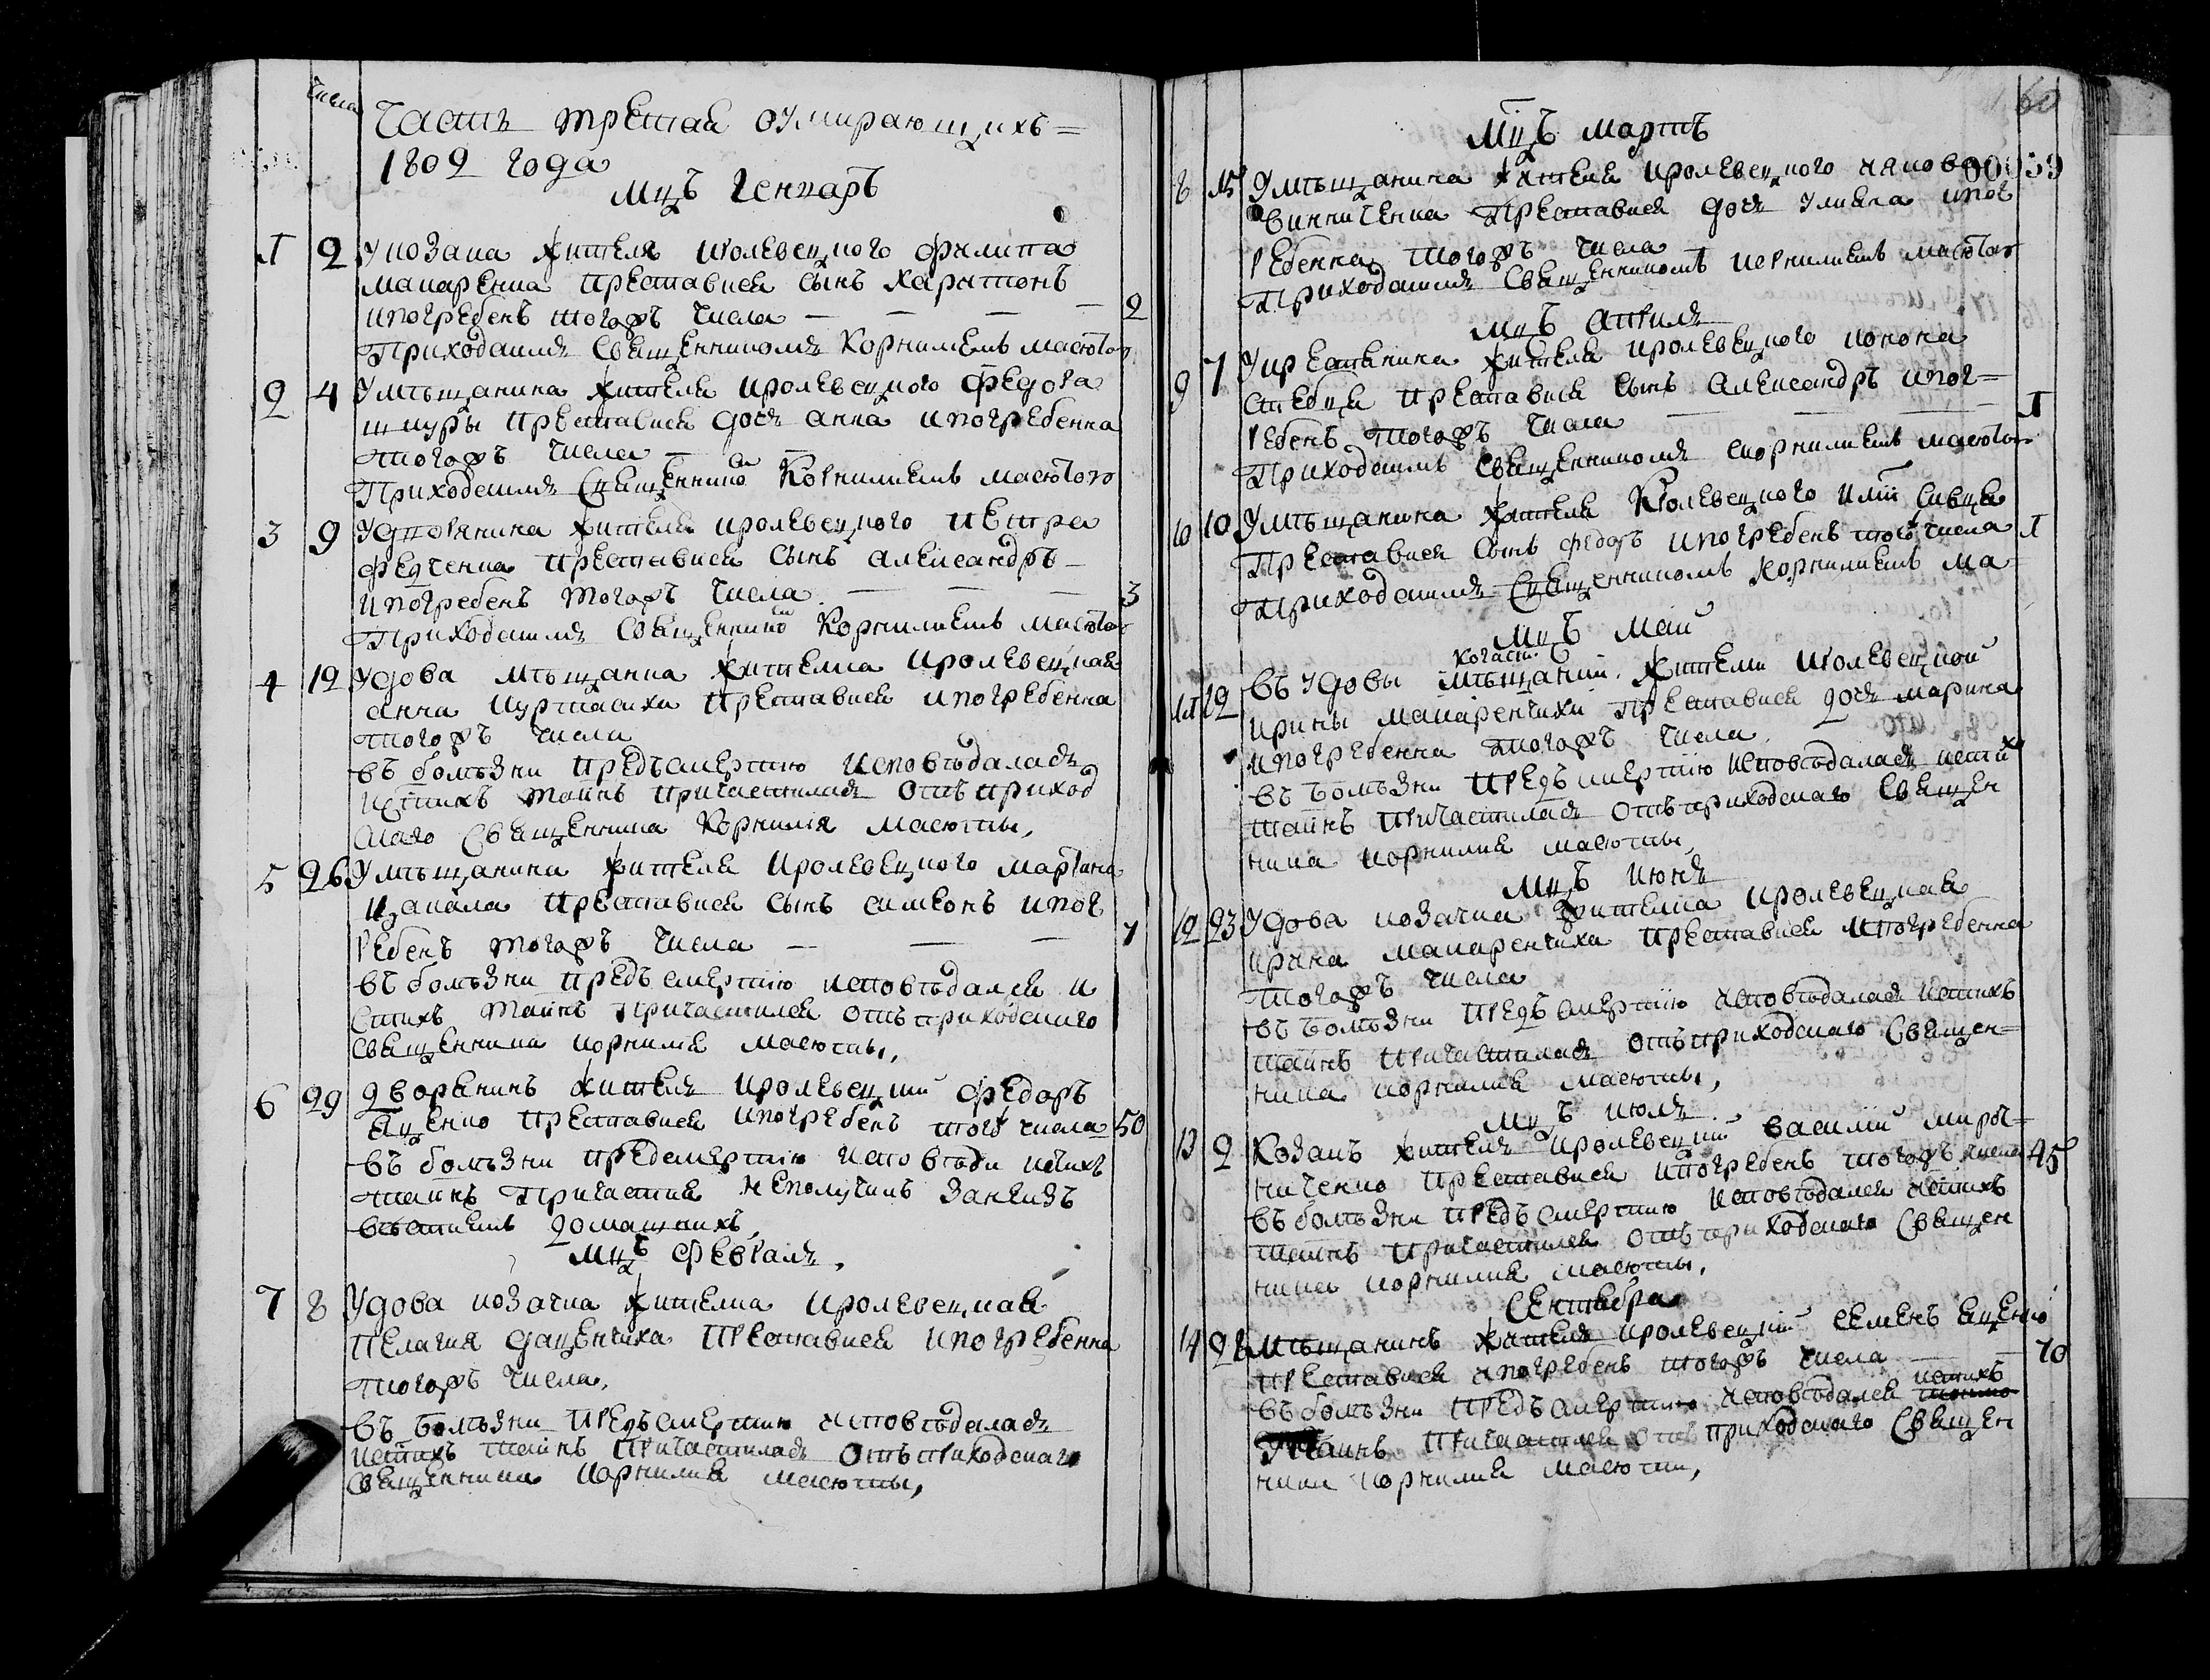 Числа
Часть третая оумирающихъ =
1802 года
Мцъ Генваръ
1 2 У козака жителя кролевецкого филипа
макаренка преставися сынъ харитонъ
и погребенъ тогожъ числа — — — — 2
Приходскимъ Священникомъ Корнилиемъ Масютою
2 4 У мѣщанина жителя кролевецкого Федора
шкуры преставися дочь анна и погребенна
тогожъ числа —
Приходскимъ Священникомъ Корнилиемъ масютою
3 9 У дворянина жителя кролевецкого петра
федченка преставися сынъ александръ —
и погребенъ тогожъ числа — — — 3
Приходскимъ Священникомъ Корнилиемъ масютою
4 12 Удова мѣщанка жителка кролевецкая
анна преставися и погребенна
тогожъ числа
въ болѣзни предъ смертию исповѣдалась
и стихъ таинъ причастилась отъ приход
скаго Священника Корнилия Масюты,
5 26 У мѣщанина жителя кролевецкого мартина
цапала преставися сынъ симеонъ и пог
ребенъ тогожъ числа — — — 7
въ болѣзни предъ смертию исповѣдался и
стихъ таинъ причастился отъ приходского
священника корнилия масюты,
6 29 Дворянинъ житель кролевецкий федоръ
яценко преставися и погребенъ тогожъ числа 50
въ болѣзни предсмертию исповѣди и стихъ
таинъ причастия не получилъ
домашнихъ,
мцъ Февраля,
7 8 Удова козачка жителка кролевецкая
пелагия дащенчиха преставися и погребенна
тогожъ числа,
въ болѣзни предъ смертию исповѣдалась
и стихъ таинъ причастилась отъ приходскаго
священника корнилия масюты,
60
Мцъ Мартъ
00059
8 15 У мѣщанина жителя кролевецкого
винниченка преставися дочь улияна и пог
ребенна тогожъ числа
Приходскимъ Священникомъ корнилиемъ масютою
мцъ априля
9 7 У крестянина жителя кролевецкого конона
преставися сынъ александръ и пог=
ребенъ тогожъ числа — — — 1
Приходскимъ Священникомъ корнилиемъ масютою
10 10 У мѣщанина жителя Кролевецкого илии сивца
Преставися сынъ федоръ и погребенъ тогожъ числа 1
Приходскимъ Священникомъ Корнилиемъ ма
мцъ Май
11 12 въ удовы мѣщанки жителки кролевецкой
ирины макаренчихи преставися дочь марина
и погребенна тогожъ числа
въ болѣзни предъ смертию исповѣдалась и стихъ
таинъ причастилась отъ приходскаго Священ
ника корнилия масюты,
Мцъ июня
12 23 Удова козачка жителка кролевецкая
ирина макаренчиха преставися и погребенна
тогожъ числа
въ болѣзни предъ смертию исповѣдалась и стихъ
таинъ причастилась отъ приходскаго Священ=
ника корнилия масюты,
мцъ июля
13 2 Козакъ житель кролевецкий василий миро=
ниченко преставися и погребенъ тогожъ числа 45
въ болѣзни предъ смертию исповѣдался и стихъ
таинъ причастился отъ приходскаго Священ
ника корнилия масюты,
Сентября
14 28 Мѣщанинъ житель кролевецкий семенъ яценко
преставися и погребенъ тогожъ числа — 70
въ болѣзни предъ смертию исповѣдался и стихъ
таинъ причастился отъ приходскаго Священ
ника корнилия масюты,